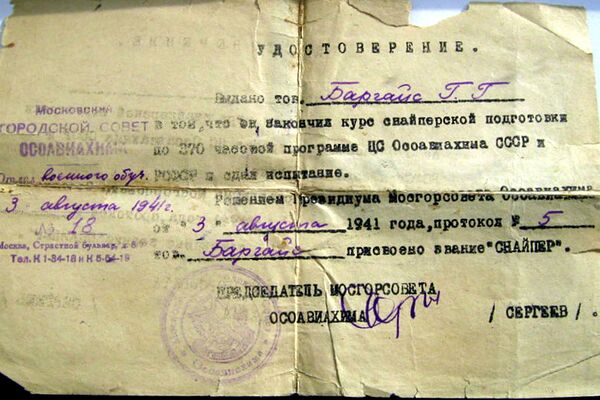 УДОСТОВЕРЕНИЕ.
Выдано тов. Баргайс Г. Г
в том, что он, закончил курс снайперской подготовки
по 370 часовой программе ЦС Осоавиахима СССР и
РСФСР и сдал испытание.
Решением Президиума Мосгорсовета Осоавиахима
от "3" августа 1941 года, протокол № 5
тов. Баргайс присвоено звание "СНАЙПЕР".
ПРЕДСЕДАТЕЛЬ МОСГОРСОВЕТА
ОСОАВИАХИМА / СЕРГЕЕВ / .
Московский
ГОРОДСКОЙ СОВЕТ
ОСОАВИАХИМА
Отдел военного обуч.
3 августа 1941 г.
№ 18
Москва, Страстной бульвар, д. 8
Тел. К 1-84-18 и К 5-64-19